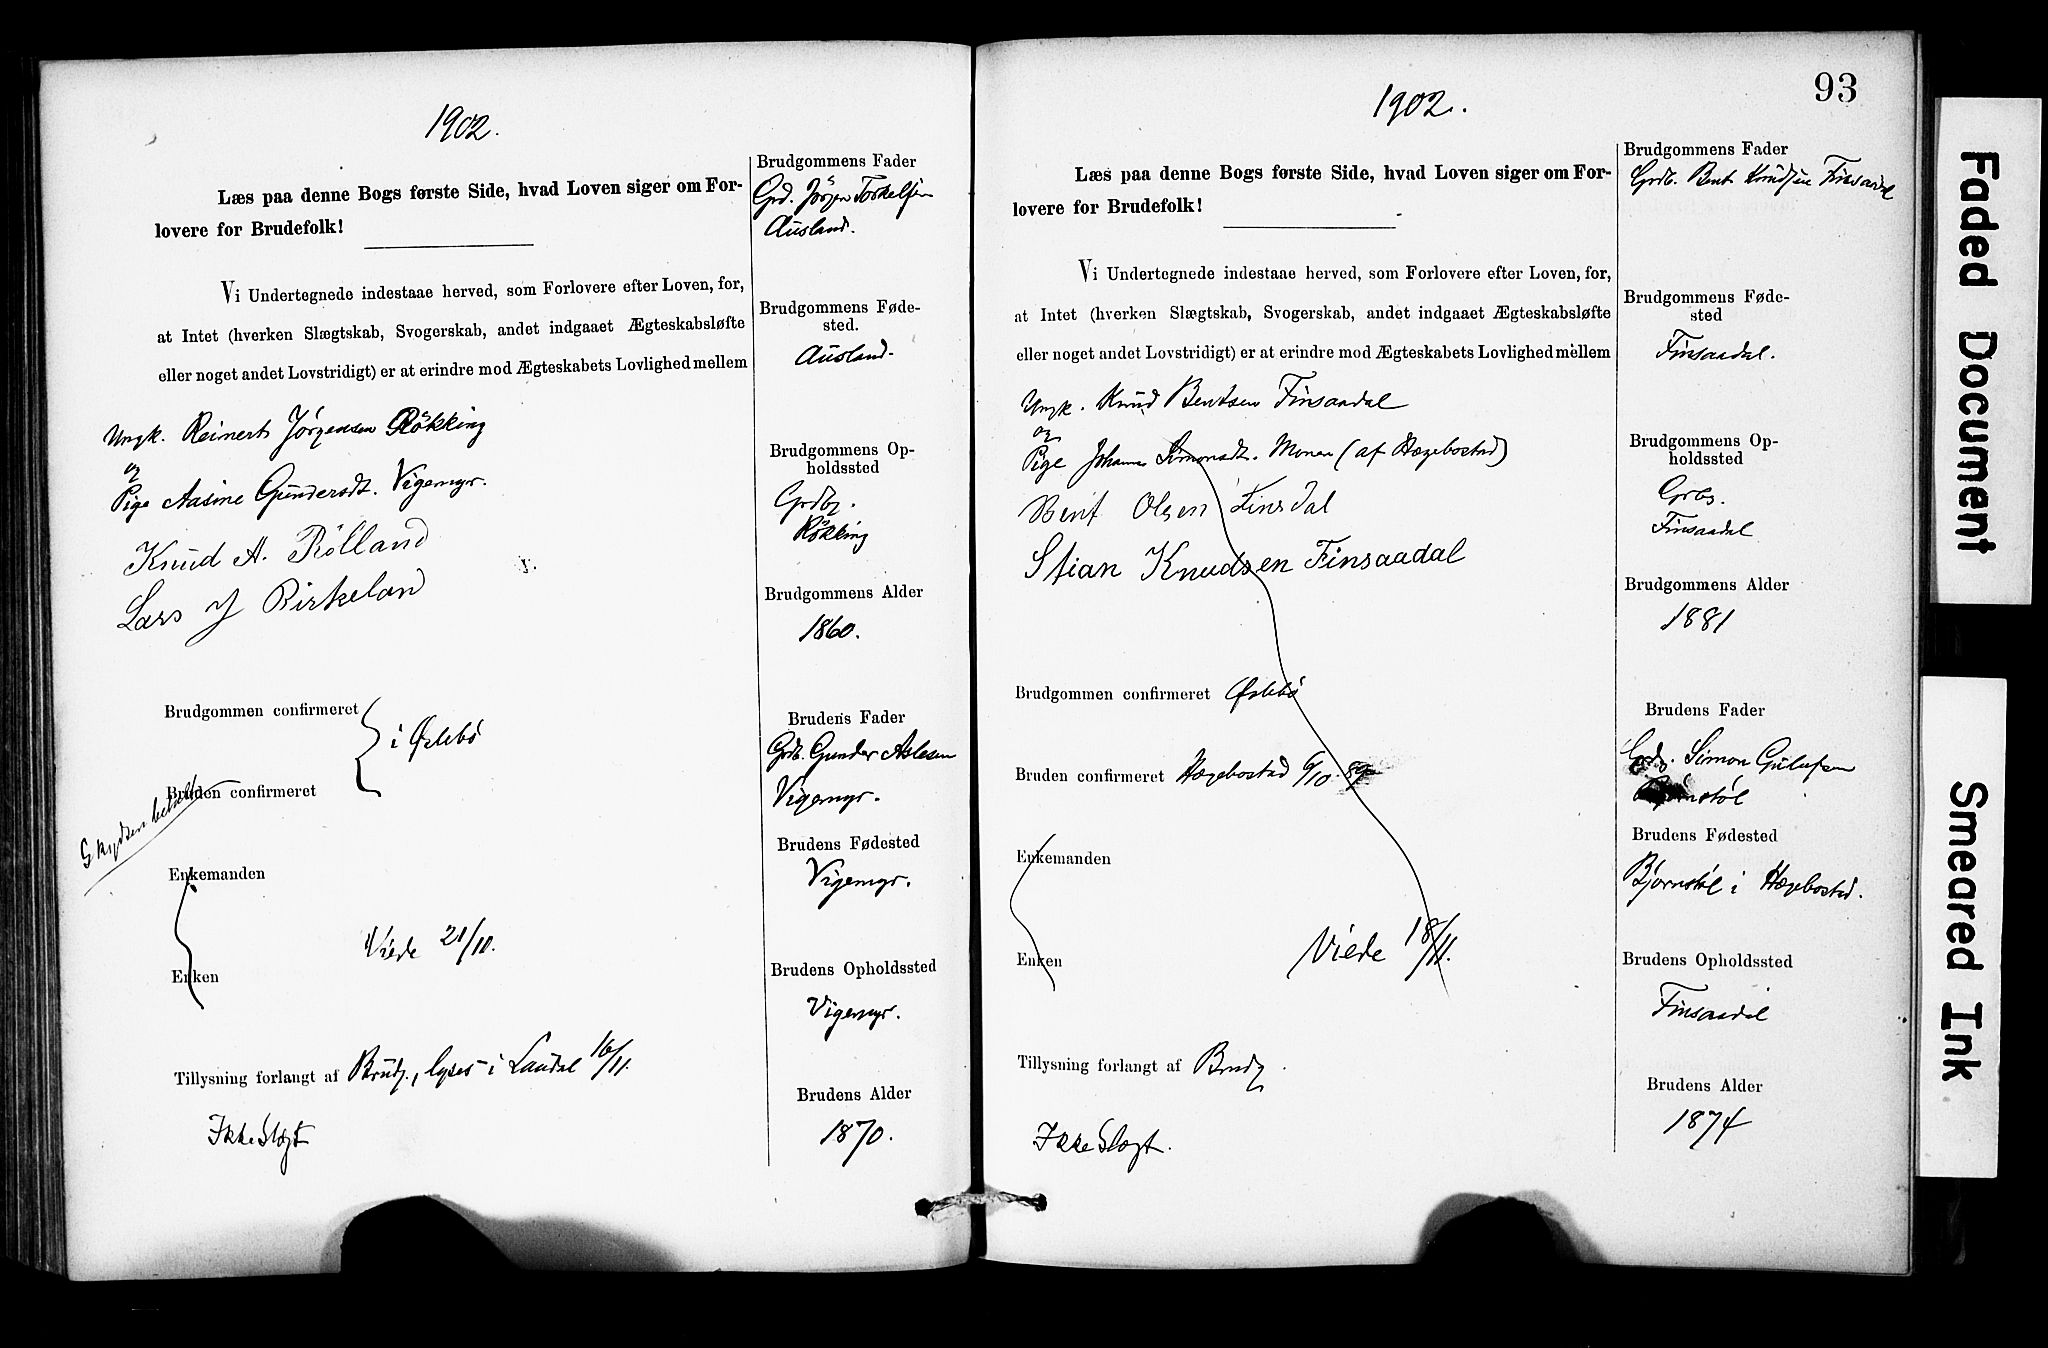 1902.
Læs paa denne Bogs første Side, hvad Loven siger om For-
lovere for Brudefolk!
Vi Undertegnede indestaae herved, som Forlovere efter Loven, for,
at Intet (hverken Slægtskab, Svogerskab, andet indgaaet Ægteskabsløfte
eller noget andet Lovstridigt) er at erindre mod Ægteskabets Lovlighed mellem
Ungk. Reinert Jörgensen Rökking
og
Pige Aasine Gundersdt. Vigemyr.
Knud A. Rölland
Lars J Birkeland
Brudgommen confirmeret
i Øslebö
Bruden confirmeret
Skydsen betalt
Enkemanden
Viede 21/11.
Enken
Tillysning forlangt af Brudg., lyses i Laudal 16/11.
Ikke Slægt
Brudgommens Fader
Grd. Jörgen Torkelsen
Ausland.
Brudgommens Føde-
sted.
Ausland.
Brudgommens Op-
holdssted
Grdbr.
Rökking
Brudgommens Alder
1860.
Brudens Fader
Grdb. Gunder Aslesen
Vigemyr.
Brudens Fødested
Vigemyr.
Brudens Opholdssted
Vigemyr.
Brudens Alder
1870.
93
1902.
Læs paa denne Bogs første Side, hvad Loven siger om For-
lovere for Brudefolk!
Vi Undertegnede indestaae herved, som Forlovere efter Loven, for,
at Intet (hverken Slægtskab, Svogerskab, andet indgaaet Ægteskabsløfte
eller noget andet Lovstridigt) er at erindre mod Ægteskabets Lovlighed mellem
Ungk. Knud Bentsen Finsaadal
og
Pige Johanne Simonsdt. Monen (af Hægebostad)
Bent Olsen Finsdal
Stian Knudsen Finsaadal
Brudgommen confirmeret Øslebö
Bruden confirmeret Hægebostad 6/10 89
Enkemanden
Enken
Viede 18/11.
Tillysning forlangt af Brudg.
Ikke Slægt.
Brudgommens Fader
Grdb. Bent Knudsen Finsaadal
Brudgommens Føde-
sted
Finsaadal.
Brudgommens Op-
holdssted
Grbs.
Finsaadal
Brudgommens Alder
1881
Brudens Fader
Grdb. Simon Gulufsen
Björnstöl
Brudens Fødested
Bjornstöl i Hægebostad.
Brudens Opholdssted
Finsaadal
Brudens Alder
1874
Faded Document
Smeared Ink